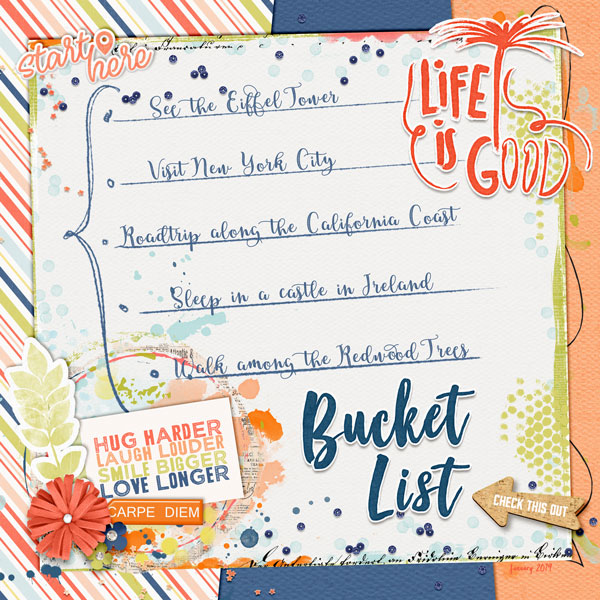 start
here
LIFE
is
GOOD
See the Eiffel Tower
Visit New York City
Roadtrip along the California Coast
Sleep in a castle in Ireland
Walk among the Redwood Trees
Bucket
List
HUG HARDER
LAUGH LOUDER
SMILE BIGGER
LOVE LONGER
CARPE DIEM
CHECK THIS OUT
January 2019